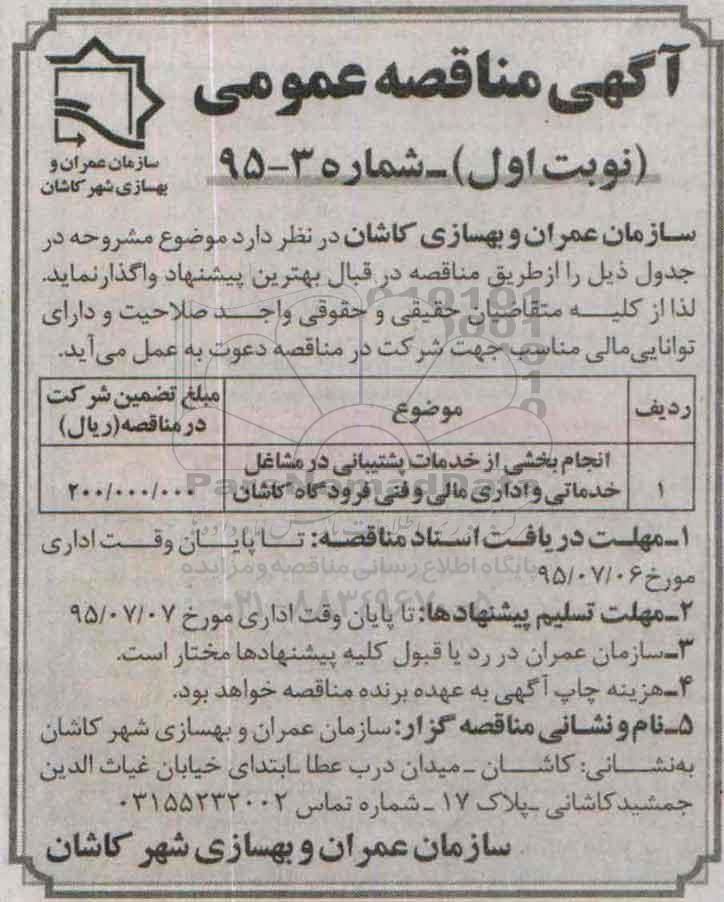 آگهی مناقصه عمومی
(نوبت اول)ـ شماره ۳-۹۵
سازمان عمران و
بهسازی شهر کاشان
سازمان عمران و بهسازی کاشان در نظر دارد موضوع مشروحه در
جدول ذیل را از طریق مناقصه در قبال بهترین پیشنهاد واگذار نماید.
لذا از کلیه متقاضیان حقیقی و حقوقی واجد صلاحیت و دارای
توانایی مالی مناسب جهت شرکت در مناقصه دعوت به عمل می‌آید.
ردیف موضوع مبلغ تضمین شرکت
در مناقصه (ریال)
انجام بخشی از خدمات پشتیبانی در مشاغل
۱ خدماتی و اداری مالی و فنی فرودگاه کاشان ۲۰۰/۰۰۰/۰۰۰
۱ـ مهلت دریافت اسناد مناقصه: تا پایان وقت اداری
مورخ ۹۵/۰۷/۰۶
۲ـ مهلت تسلیم پیشنهادها: تا پایان وقت اداری مورخ ۹۵/۰۷/۰۷
۳ـ سازمان عمران در رد یا قبول کلیه پیشنهادها مختار است.
۴ـ هزینه چاپ آگهی به عهده برنده مناقصه خواهد بود.
۵ـ نام و نشانی مناقصه گزار: سازمان عمران و بهسازی شهر کاشان
به‌نشانی: کاشان ـ میدان درب عطا ـ ابتدای خیابان غیاث الدین
جمشید کاشانی ـ پلاک ۱۷ ـ شماره تماس ۰۳۱۵۵۲۳۲۰۰۲
سازمان عمران و بهسازی شهر کاشان
ParsNamadData
پایگاه اطلاع رسانی مناقصه و مزایده